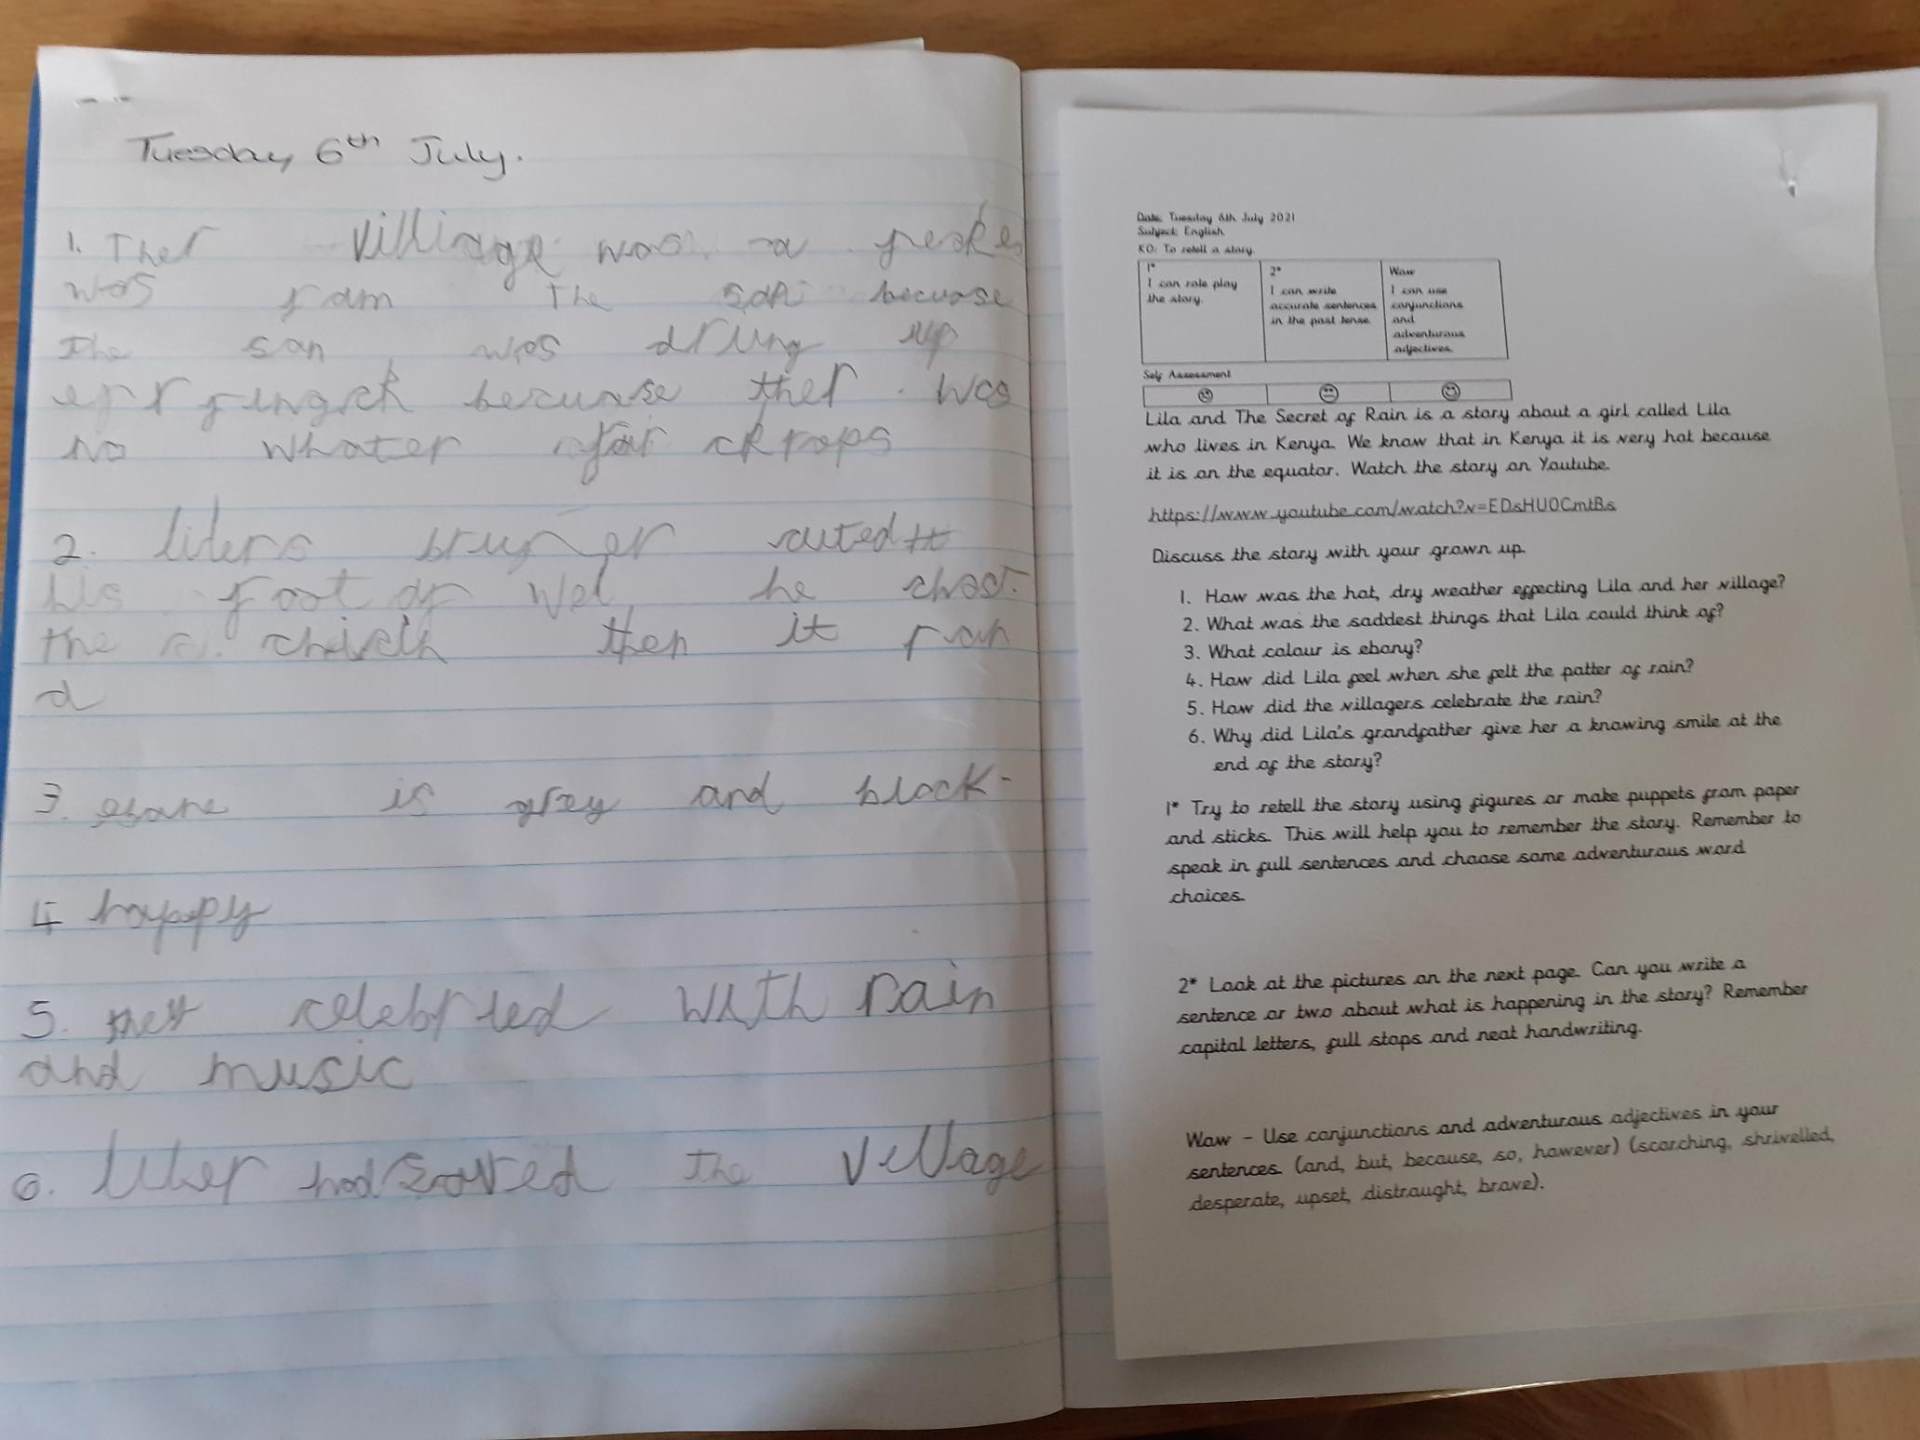 Tuesday 6th July.
1. Ther village was a
was from The san becuase
The san was drung up
becuase ther was
No whater for ckrops
2. liders bruner cuted
his foot of wel he chast
the chicih then it ran
3. is grey and black.
4 happy
5. they celebrted with rain
and music
6. had saved the village
Date: Tuesday 6th July 2021
Subject: English
KO: To retell a story.
1*
I can role play
the story.
2*
I can write
accurate sentences
in the past tense.
Wow
I can use
conjunctions
and
adventurous
adjectives.
Self Assessment
Lila and The Secret of Rain is a story about a girl called Lila
who lives in Kenya. We know that in Kenya it is very hot because
it is on the equator. Watch the story on Youtube.
https://www.youtube.com/watch?v=EDsHU0CmtBs
Discuss the story with your grown up.
1. How was the hot, dry weather effecting Lila and her village?
2. What was the saddest things that Lila could think of?
3. What colour is ebony?
4. How did Lila feel when she felt the patter of rain?
5. How did the villagers celebrate the rain?
6. Why did Lila's grandfather give her a knowing smile at the
end of the story?
1* Try to retell the story using figures or make puppets from paper
and sticks. This will help you to remember the story. Remember to
speak in full sentences and choose some adventurous word
choices.
2* Look at the pictures on the next page. Can you write a
sentence or two about what is happening in the story? Remember
capital letters, full stops and neat handwriting.
Wow - Use conjunctions and adventurous adjectives in your
sentences. (and, but, because, so, however) (scorching, shrivelled,
desperate, upset, distraught, brave).